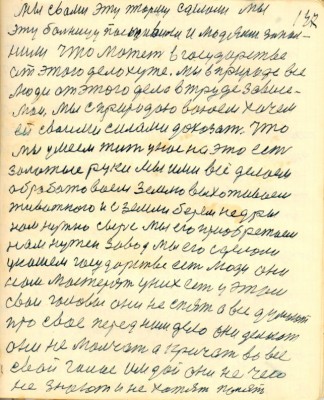 132
мы свами эту тюрму сделали мы
эту болницу построили и людями запол-
нили что может в государстве
от этого дело хуже. мы в природе все
люди от этого дела в труде зависи-
мы, мы с природою воюем хочем
ей своими силами доказать. что
мы умеем жить у нас на это есть
золотые руки мы ими всё делаем
обработоваем землю выхотиваем
животного и с земли берем недры
нам нужно сырье мы его приобретаем
нам нужен завод мы его сделали
у нашем государстве есть люди они
нам мастерят у них есть у этом
свои головы они не спят а все думают
про свое переднии дело они делают
они не молчат а кричат во все
свой голос им дай они не чего
не знают и не хотят понят